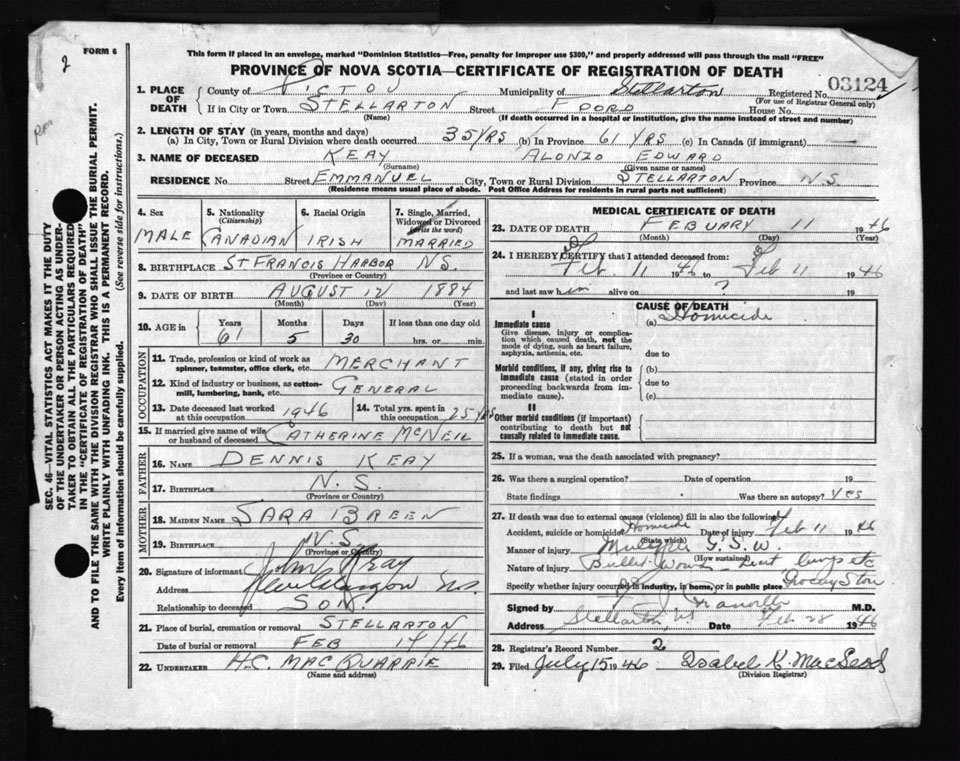 2
FORM 6
This form if placed in an envelope, marked "Dominion Statistics—Free, penalty for improper use $300," and properly addressed will pass through the mail "FREE"
PROVINCE OF NOVA SCOTIA—CERTIFICATE OF REGISTRATION OF DEATH
03124
1. PLACE OF DEATH County of PICTOU Municipality of Stellarton Registered No.
(For use of Registrar General only)
If in City or Town STELLARTON Street FOORD House No.
(Name) (If death occurred in a hospital or institution, give the name instead of street and number)
2. LENGTH OF STAY (in years, months and days)
(a) In City, Town or Rural Division where death occurred 35 YRS (b) In Province 61 YRS (c) In Canada (if immigrant)
3. NAME OF DECEASED KEAY ALONZO EDWARD
(Surname) (Given name or names)
RESIDENCE No. Street EMMANUEL City, Town or Rural Division STELLARTON Province N.S.
(Residence means usual place of abode. Post Office Address for residents in rural parts not sufficient)
4. Sex MALE
5. Nationality (Citizenship) CANADIAN
6. Racial Origin IRISH
7. Single, Married, Widowed or Divorced (write the word) MARRIED
8. BIRTHPLACE ST FRANCIS HARBOR N.S.
(Province or Country)
9. DATE OF BIRTH AUGUST 12 1884
(Month) (Day) (Year)
10. AGE in Years Months Days If less than one day old
61 5 30 hrs. or min.
OCCUPATION
11. Trade, profession or kind of work as spinner, teamster, office clerk, etc. MERCHANT
12. Kind of industry or business, as cotton-mill, lumbering, bank, etc. GENERAL
13. Date deceased last worked at this occupation 1946
14. Total yrs. spent in this occupation 25 YRS
15. If married give name of wife or husband of deceased CATHERINE McNEIL
FATHER
16. NAME DENNIS KEAY
17. BIRTHPLACE N.S.
(Province or Country)
MOTHER
18. MAIDEN NAME SARA BREEN
19. BIRTHPLACE N.S.
(Province or Country)
20. Signature of informant John Keay
Address New Glasgow N.S.
Relationship to deceased SON
21. Place of burial, cremation or removal STELLARTON
Date of burial or removal FEB 14/46
22. UNDERTAKER H.C. MACQUARRIE
(Name and address)
MEDICAL CERTIFICATE OF DEATH
23. DATE OF DEATH FEBUARY 11 1946
(Month) (Day) (Year)
24. I HEREBY CERTIFY that I attended deceased from:
Feb 11 1946 to Feb 11 1946
and last saw him alive on ? 19
CAUSE OF DEATH
I
Immediate cause
Give disease, injury or complication which caused death, not the mode of dying, such as heart failure, asphyxia, asthenia, etc.
(a) Homicide
due to
Morbid conditions, if any, giving rise to immediate cause (stated in order proceeding backwards from immediate cause).
(b)
due to
(c)
II
Other morbid conditions (if important) contributing to death but not causally related to immediate cause.
25. If a woman, was the death associated with pregnancy?
26. Was there a surgical operation? Date of operation 19
State findings Was there an autopsy? Yes
27. If death was due to external causes (violence) fill in also the following:
Accident, suicide or homicide? Homicide Date of injury Feb 11 1946
(State which)
Manner of injury Multiple G.S.W.
(How sustained)
Nature of injury Bullet Wound lungs etc
Specify whether injury occurred in industry, in home, or in public place Grocery Store
Signed by M.D.
Address Stellarton, Date Feb 28 1946
28. Registrar's Record Number 2
29. Filed July 15 1946 Isabel K. MacLeod
(Division Registrar)
SEC. 46—VITAL STATISTICS ACT MAKES IT THE DUTY
OF THE UNDERTAKER OR PERSON ACTING AS UNDER-
TAKER TO OBTAIN ALL THE PARTICULARS REQUIRED
IN THE "CERTIFICATE OF REGISTRATION OF DEATH"
AND TO FILE THE SAME WITH THE DIVISION REGISTRAR WHO SHALL ISSUE THE BURIAL PERMIT.
WRITE PLAINLY WITH UNFADING INK. THIS IS A PERMANENT RECORD.
Every item of information should be carefully supplied. (See reverse side for instructions.)